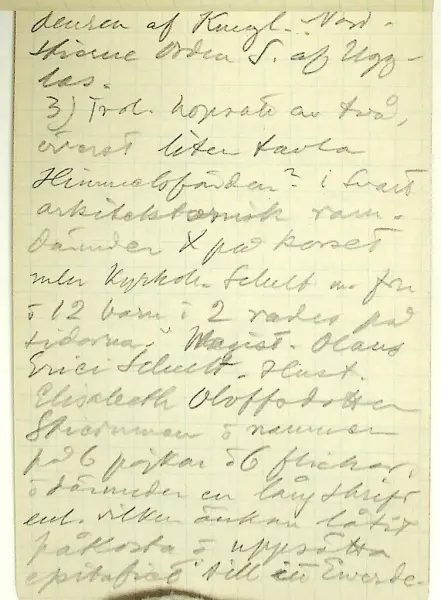 deuren af Kungl. Nord-
stierne Orden S. af Ugg-
las.
3) Trol. hopsatt av två,
överst liten tavla
Himmelsfärden? i svart
arkitektonisk ram.
därunder X på korset
under Kyrkoh. Schult m. fru
o 12 barn i 2 rader på
sidorna. Magist. Olaus
Erici Schult. Hust.
Elisabeth Oloffsdotter
Stiernman o namnen
på 6 pojkar o 6 flickor.
o därunder en lång skrift
enl. vilken änkan låtit
påkosta o uppsätta
epitafiet till en Ewerde-